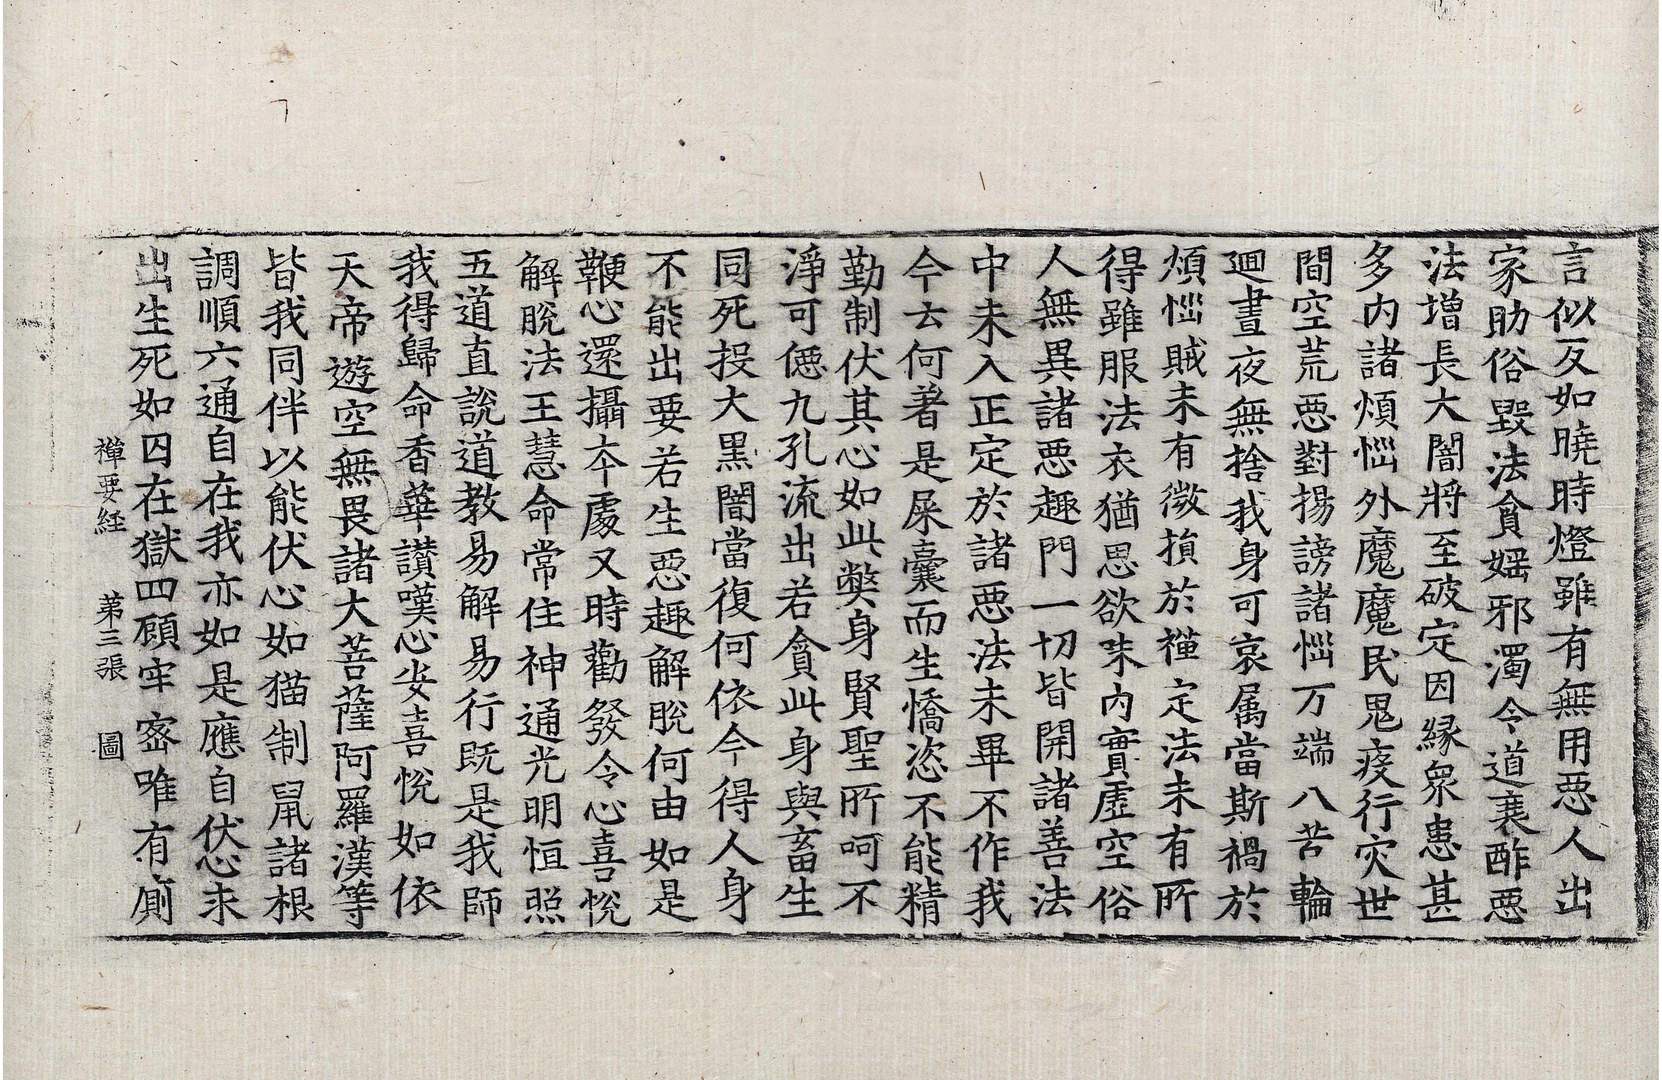 言似反如曉時燈雖有無用惡人出
家助俗毀法貪婬邪濁令道衰酢惡
法增長大闇將至破定因緣衆患甚
多內諸煩惱外魔魔民鬼疫行灾世
間空荒惡對揚謗諸惱万端八苦輪
迴晝夜無捨我身可哀属當斯禍於
煩惱賊未有微損於禪定法未有所
得雖服法衣猶思欲味內實虛空俗
人無異諸惡趣門一切皆開諸善法
中未入正定於諸惡法未畢不作我
今云何著是屎囊而生憍恣不能精
勤制伏其心如此弊身賢聖所呵不
淨可僫九孔流出若貪此身與畜生
同死投大黑闇當復何依今得人身
不能出要若生惡趣解脫何由如是
鞭心還攝本處又時勸發令心喜悅
解脫法王慧命常住神通光明恒照
五道直說道教易解易行既是我師
我得歸命香華讃嘆心安喜悅如依
天帝遊空無畏諸大菩薩阿羅漢等
皆我同伴以能伏心如猫制鼠諸根
調順六通自在我亦如是應自伏心求
出生死如囚在獄四顧牢密唯有廁
禪要経　苐三張　圖